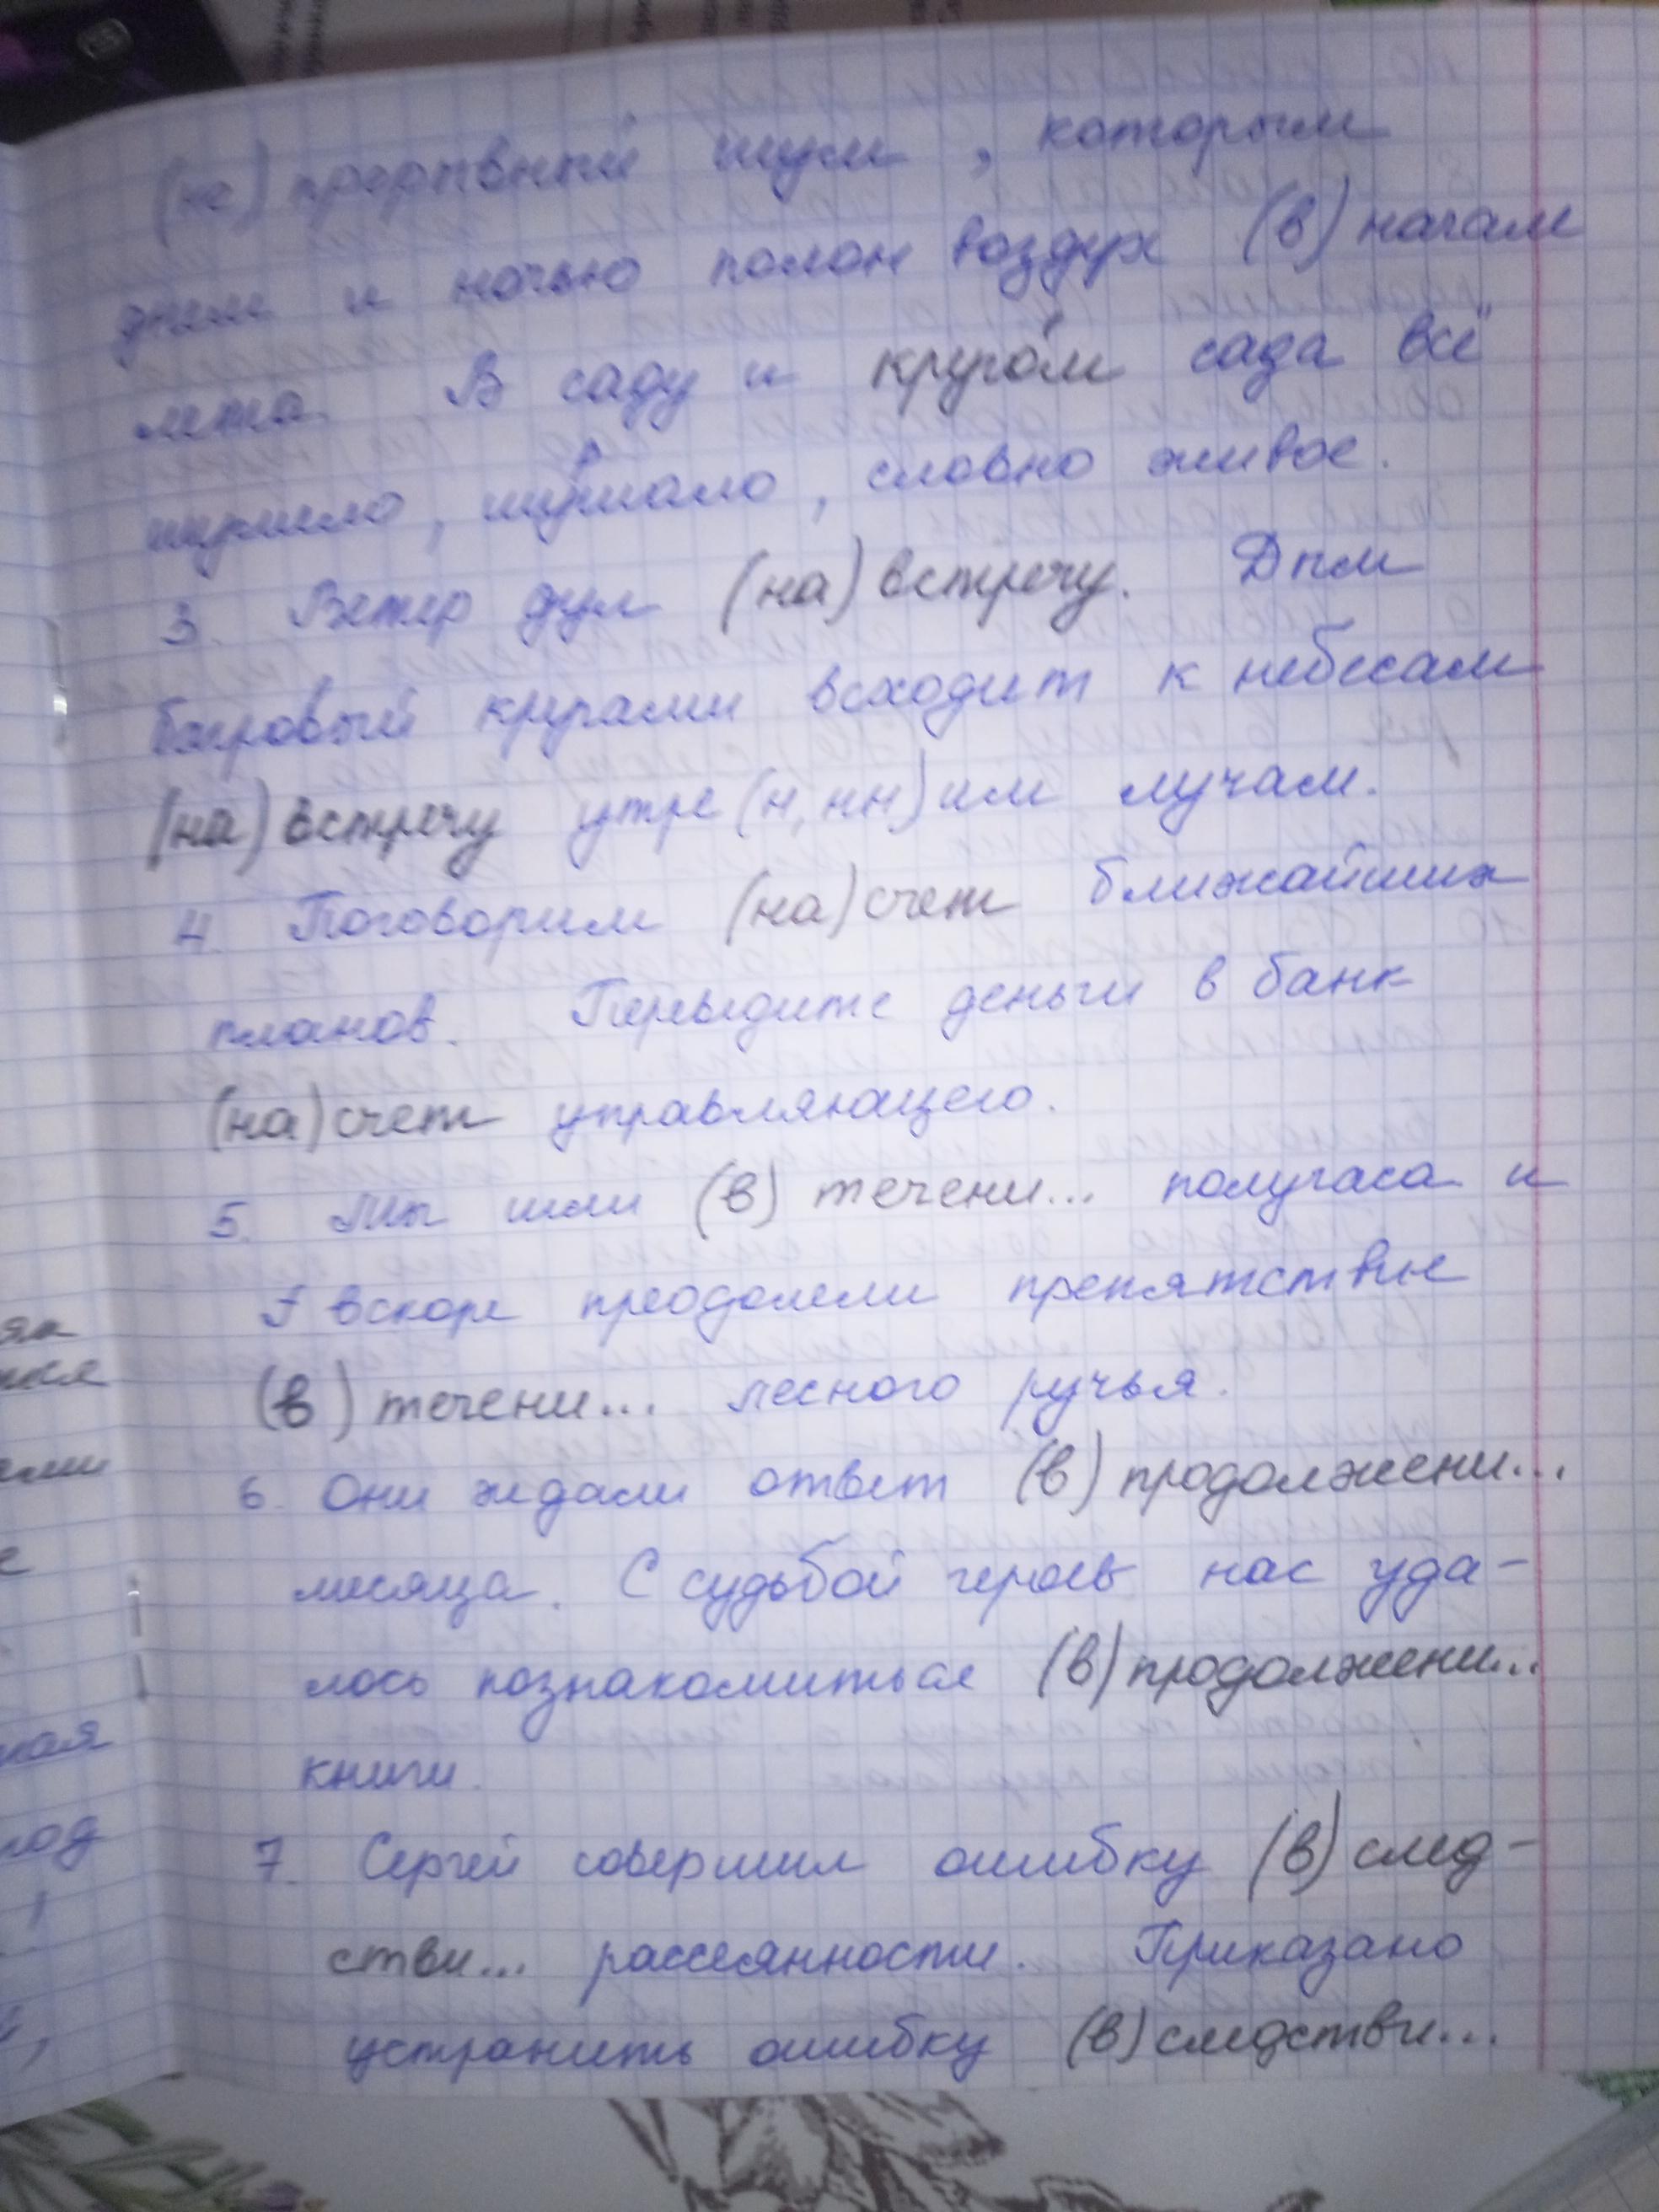 (не) прерывный шум, которым
днем и ночью полон воздух (в) начале
лета. В саду и кругом сада всё
шумело, шуршало, словно живое.
3. Ветер дул (на) встречу. Дым
багровый кругами всходит к небесам
(на) встречу утре (н, нн) им лучам.
4. Поговорим (на) счет ближайших
планов. Переведите деньги в банк
(на) счет управляющего.
5. Мы шли (в) течени... получаса и
вскоре преодолели препятствие
(в) течени... лесного ручья.
6. Они ждали ответ (в) продолжени...
месяца. С судьбой героев нас уда-
лось познакомиться (в) продолжени...
книги.
7. Сергей совершил ошибку (в) след-
стви... рассеянности. Приказано
устранить ошибку (в) следстви...